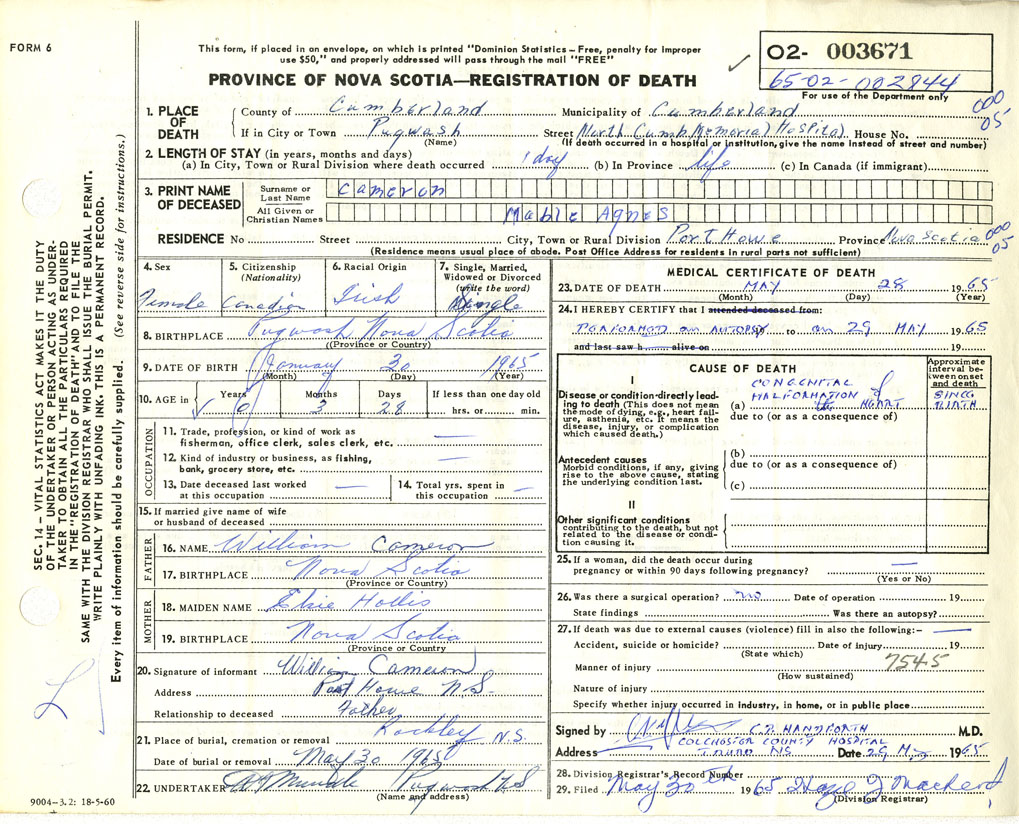 FORM 6
This form, if placed in an envelope, on which is printed "Dominion Statistics – Free, penalty for improper
use $50," and properly addressed will pass through the mail "FREE"
PROVINCE OF NOVA SCOTIA—REGISTRATION OF DEATH
02- 003671
65-02-002844
For use of the Department only
000
05
1. PLACE OF DEATH
County of Cumberland Municipality of Cumberland
If in City or Town Pugwash Street North Cumb. Memorial Hospital House No.
(Name) (If death occurred in a hospital or institution, give the name instead of street and number)
2. LENGTH OF STAY (in years, months and days)
(a) In City, Town or Rural Division where death occurred 1 day (b) In Province life (c) In Canada (if immigrant)
3. PRINT NAME OF DECEASED
Surname or Last Name Cameron
All Given or Christian Names Mable Agnes
RESIDENCE No Street City, Town or Rural Division Port Howe Province Nova Scotia
000
05
(Residence means usual place of abode. Post Office Address for residents in rural parts not sufficient)
4. Sex Female
5. Citizenship (Nationality) Canadian
6. Racial Origin Irish
7. Single, Married, Widowed or Divorced (write the word) Single
8. BIRTHPLACE Pugwash Nova Scotia
(Province or Country)
9. DATE OF BIRTH January 30 1965
(Month) (Day) (Year)
10. AGE in Years Months Days If less than one day old
0 3 28 hrs. or min.
OCCUPATION
11. Trade, profession, or kind of work as
fisherman, office clerk, sales clerk, etc. —
12. Kind of industry or business, as fishing,
bank, grocery store, etc. —
13. Date deceased last worked
at this occupation —
14. Total yrs. spent in
this occupation —
15. If married give name of wife
or husband of deceased
FATHER
16. NAME William Cameron
17. BIRTHPLACE Nova Scotia
(Province or Country)
MOTHER
18. MAIDEN NAME Elsie Hollis
19. BIRTHPLACE Nova Scotia
(Province or Country
20. Signature of informant William Cameron
Address Port Howe N.S.
Relationship to deceased Father
21. Place of burial, cremation or removal Rockley N.S.
Date of burial or removal May 30 1965
22. UNDERTAKER Pugwash NS
(Name and address)
9004–3.2: 18-5-60
MEDICAL CERTIFICATE OF DEATH
23. DATE OF DEATH MAY 28 1965
(Month) (Day) (Year)
24. I HEREBY CERTIFY that I attended deceased from:
PERFORMED AN AUTOPSY to on 29 MAY 1965
and last saw h alive on 19
CAUSE OF DEATH
Approximate interval between onset and death
I
Disease or condition directly leading to death (This does not mean the mode of dying, e.g., heart failure, asthenia, etc. It means the disease, injury, or complication which caused death.)
(a) CONGENITAL MALFORMATION of the HEART SINCE BIRTH
due to (or as a consequence of)
Antecedent causes
Morbid conditions, if any, giving rise to the above cause, stating the underlying condition last.
(b)
due to (or as a consequence of)
(c)
II
Other significant conditions
contributing to the death, but not related to the disease or condition causing it.
25. If a woman, did the death occur during
pregnancy or within 90 days following pregnancy? —
(Yes or No)
26. Was there a surgical operation? no Date of operation 19
State findings Was there an autopsy?
27. If death was due to external causes (violence) fill in also the following:– —
Accident, suicide or homicide? Date of injury 19
(State which)
Manner of injury 7545
(How sustained)
Nature of injury
Specify whether injury occurred in industry, in home, or in public place
Signed by C.D. HANDFORTH M.D.
COLCHESTER COUNTY HOSPITAL
Address TRURO NS Date 29 May 1965
28. Division Registrar's Record Number
29. Filed May 30th 1965
(Division Registrar)
SEC. 14 – VITAL STATISTICS ACT MAKES IT THE DUTY
OF THE UNDERTAKER OR PERSON ACTING AS UNDER-
TAKER TO OBTAIN ALL THE PARTICULARS REQUIRED
IN THE "REGISTRATION OF DEATH" AND TO FILE THE
SAME WITH THE DIVISION REGISTRAR WHO SHALL ISSUE THE BURIAL PERMIT.
WRITE PLAINLY WITH UNFADING INK. THIS IS A PERMANENT RECORD.
Every item of information should be carefully supplied. (See reverse side for instructions.)